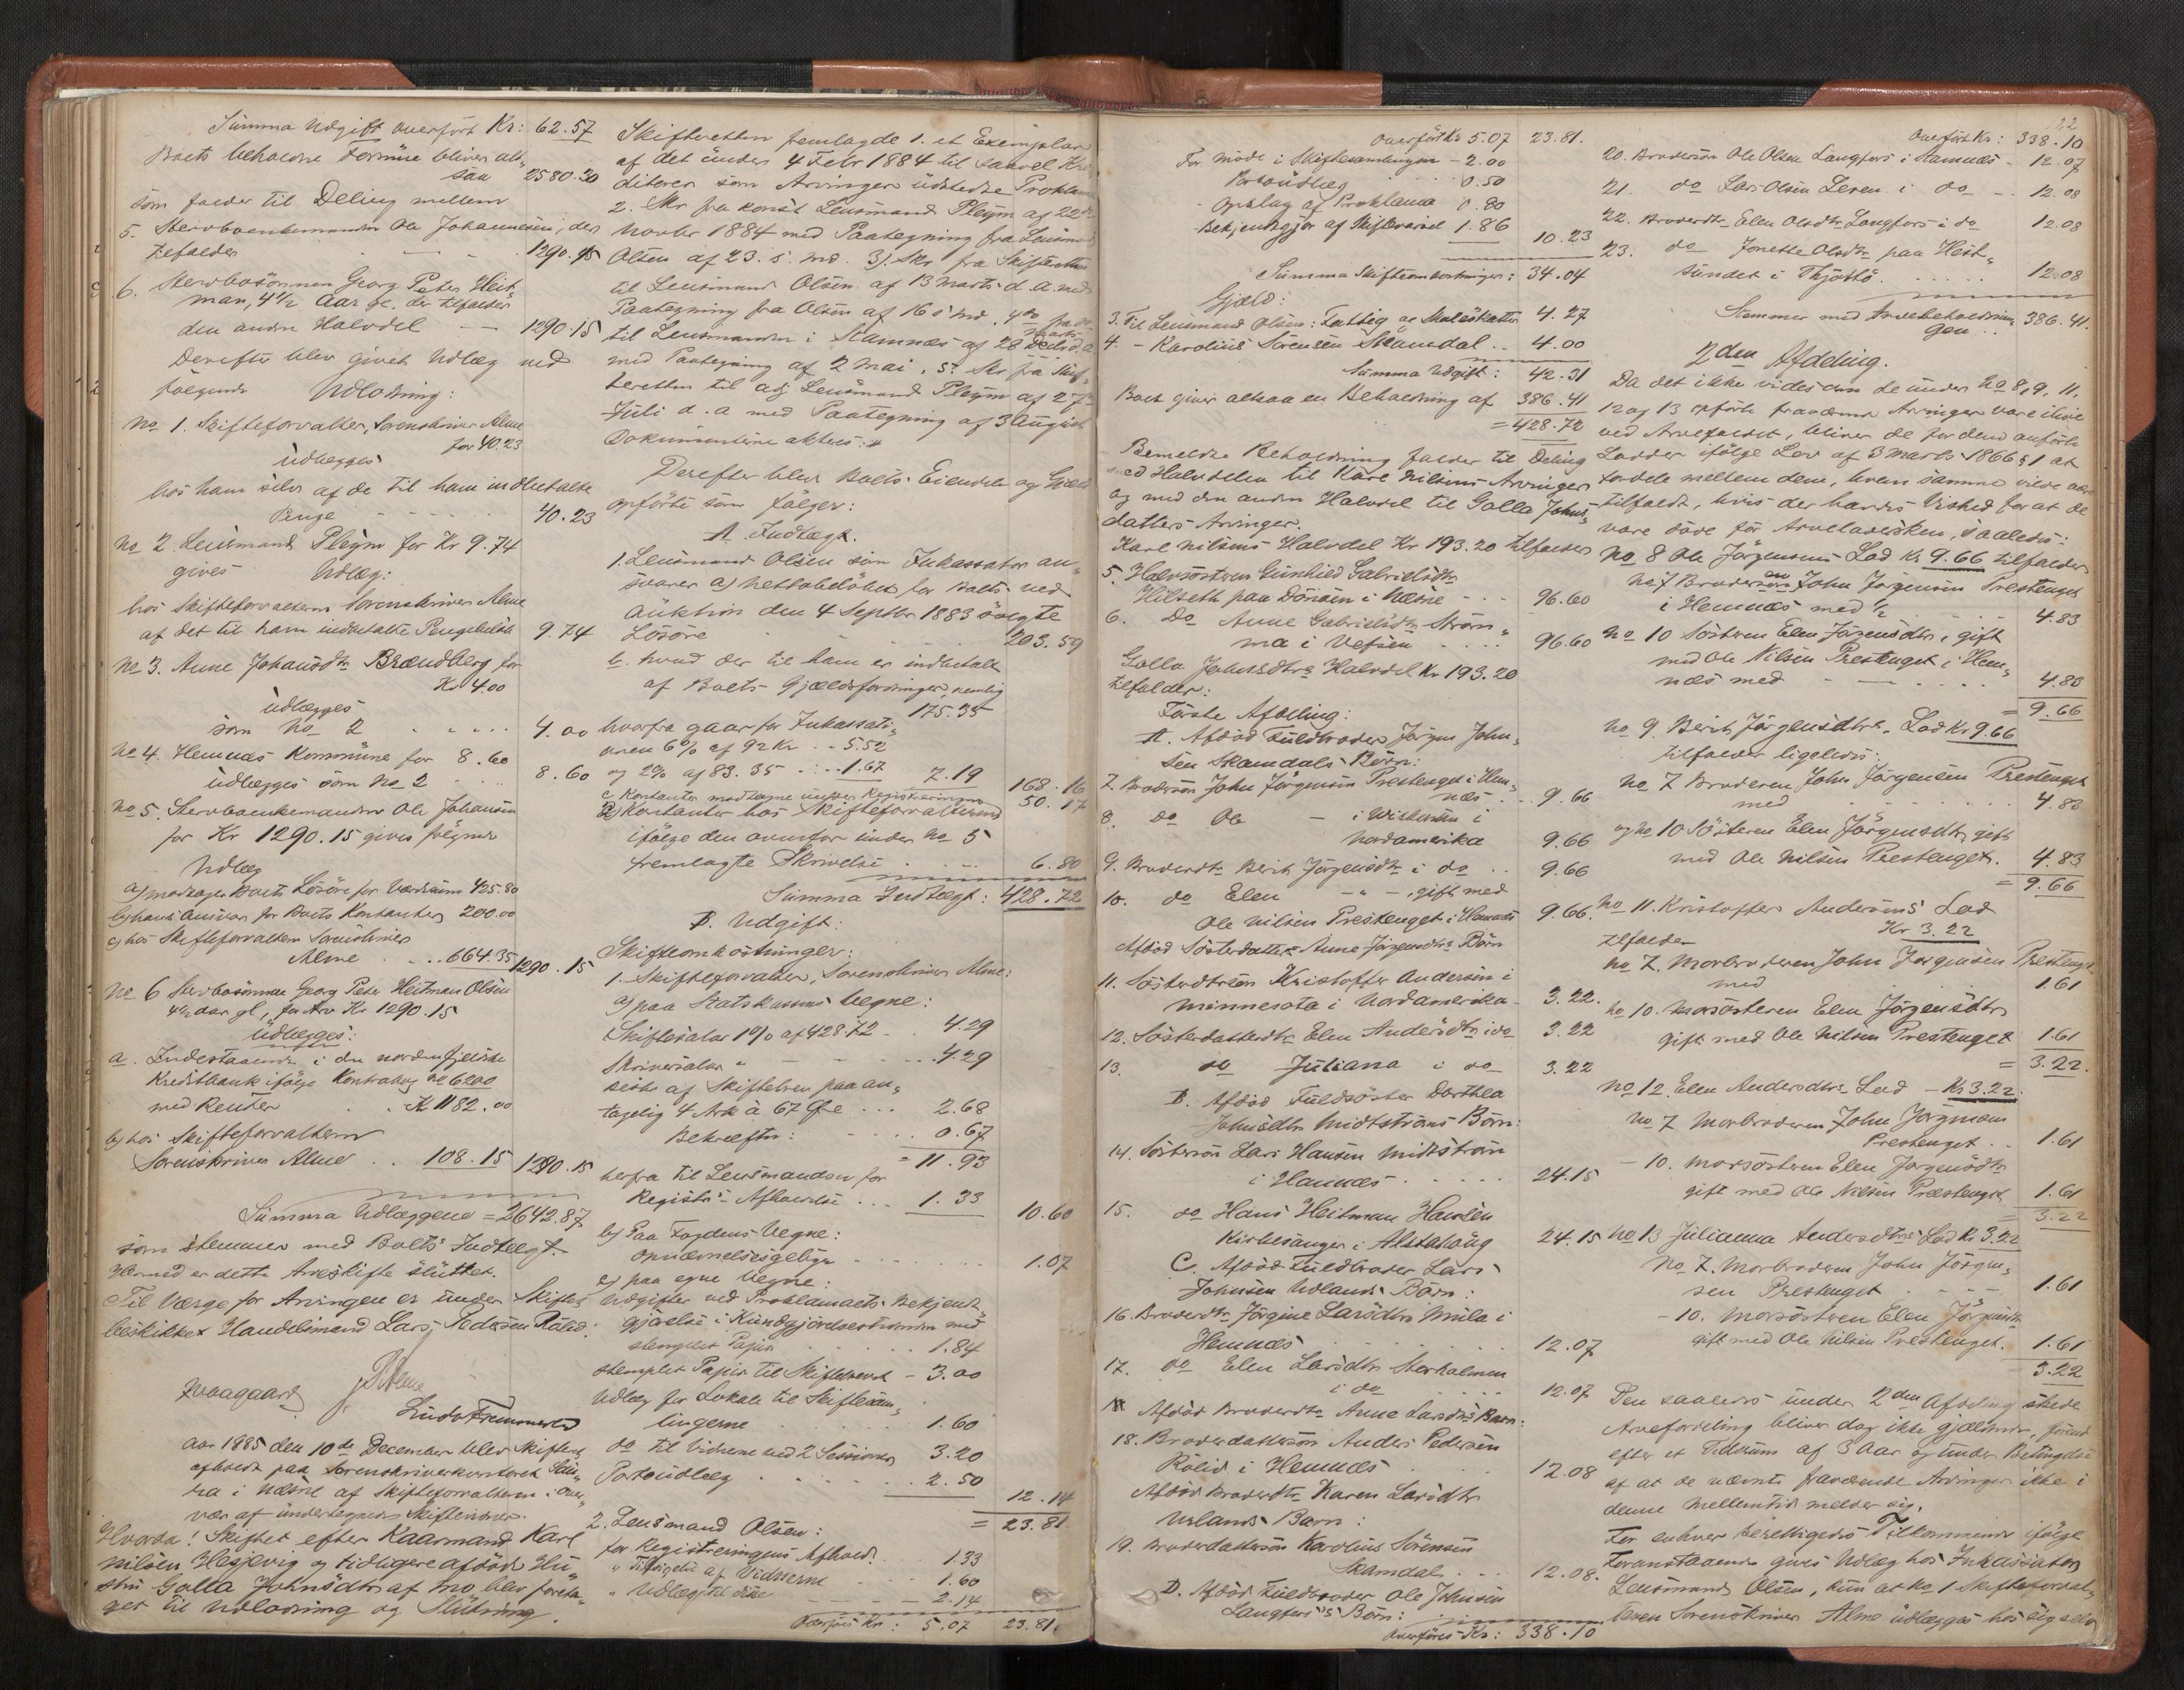 Summa Udgift overført Kr: 62.57
Boets beholdne Formue bliver alt-
saa 2580.30
som falder til Deling mellem
5. Stervboenkemanden Ole Johannesen, der
tilfalder 1290.15
6. Stervbosønnen Georg Peter Heit-
man, 4 1/2 Aar gl. der tilfalder
den anden Halvdel 1290.15
Derefter blev givet Udlæg ved
følgende Udlodning:
No 1. Skifteforvalter, Sorenskriver Alme
for 40.23
udlægges
hos ham selv af de til ham indbetalte
Penge 40.23
No 2 Lensmand Pleym for Kr 9.74
gives Udlæg:
hos Skifteforvalteren Sorenskriver Alme
af det til ham indbetalte Pengebeløb 9.74
No 3. Anne Johansdtr Brændberg for
Kr 4.00
udlægges
som No 2 4.00
No 4. Hemnæs Kommune for 8.60
udlægges som No 2 8.60
No 5. Stervboenkemanden Ole Johansen
for Kr 1290.15 gives følgende
Udlæg
a) modtagne Boets Løsøre for Værdsum 425.80
b) hans Ansvar for Boets Kontanter 200.00
c) hos Skifteforvalteren Sorenskriver
Alme 664.35 1290.15
No 6 Stervbosønnen Georg Peter Heitman Olsen
4 1/2 aar gl, for Arv Kr 1290.15
udlægges:
a. Indestaaende i den nordenfjeldske
Kreditbank ifølge Kontrabog No 6200
med Renter Kr 1182.00
b) hos Skifteforvalteren
Sorenskriver Alme 108.15 1290.15
Summa Udlæggene = 2642.87
som stemmer med Boets Indtægt.
Hermed er dette Arveskifte sluttet.
Til Værge for Arvingen er under Skiftet
beskikket Handelsmand Lars Pedersen Rølid.
Alme
Aar 1885 den 10de December blev Skifteret
afholdt paa Sorenskriverkontoret San-
na i Næsne af Skifteforvalteren i Over-
vær af undertegnede Skiftevidner.
Hvorda! Skiftet efter Kaarmand Karl
Nilsen Hesjevig og tidligere afdøde Hu-
stru Golla Johnsdtr af Mo blev foreta-
get til Udlodning og Slutning.
Skifteretten fremlagde 1. et Exemplar
af det under 4 Febr 1884 til saavel Kre-
ditorer som Arvinger udstedte Proklama
2. Skr fra konst Lensmand Pleym af 22de
Novbr 1884 med Paategning fra Lensmand
Olsen af 23. s. md. 3). Skr fra Skifteretten
til Lensmand Olsen af 13 Marts d. A. med
Paategning fra Olsen af 16 s md. 4de fra do
til Lensmanden i Stamnæs af 28 Marts d. a
med Paategning af 2 Mai. 5. Skr fra Skif-
teretten til adj Lensmand Pleym af 27
Juli d. a med Paategning af 3 August
Dokumenterne akteres.
Derefter blev Boets Eiendele og Gjæld
opførte som følger:
A. Indtægt.
1. Lensmand Olsen som Inkassator an-
svarer a) Nettobeløbet for Boets ved
Auktion den 4 Septbr 1883 solgte
Løsøre 203.59
b. hvad der til ham er indbetalt
af Boets Gjældsfordringer, nemlig
175.35
hvorfra gaar for Inkassati-
onen 6% af 92 Kr 5.52
og 2% af 83.35 1.67 7.19 168.16
c Kontanter modtagne under Registreringen 50.17
2) Kontanter hos Skifteforvalteren
ifølge den ovenfor under No 5
fremlagte Skrivelse 6.80
Summa Indtægt: 428.72
B. Udgift:
Skifteomkostninger:
1. Skifteforvalter, Sorenskriver Alme:
a) paa Statskassens Vegne:
Skiftesalar 1% af 428 72 4.29
Skriversalar " 4.29
seste af Skiftebrev paa an-
tagelig 4 Ark à 67 Øre 2.68
Bekræftn: 0.67
= 11.93
herfra til Lensmanden for
Registr. Afholdelse 1.33 10.60
b) Paa Fogdens Vegne:
Opnævnelsesgebyr 1.07
c) paa egne Vegne:
Udgifter ved Proklamaets Bekjendt-
gjørelse i Kundgjørelsestidende med
stemplet Papir 1.84
stemplet Papir til Skiftebrevet 3.00
Udlæg for Lokale til Skiftesam-
lingerne 1.60
do til Vidnerne ved 2 Sessioner 3.20
Portoudlæg 2.50
12.14
= 23.81
2. Lensmand Olsen:
for Registreringens Afhold. 1.33
" Tilsigelse af Vidnerne 1.60
" Udlæg til disse 2.14
Overføres Kr: 5.07 23.81.
Overført Kr 5.07 23.81.
For Møde i Skiftesamlingen 2.00
Portoudlæg 0.50
Opslag af Proklama 0.80
Bekjendtgjør af Skiftevarsel 1.86
10.23
Summa Skifteomkostninger: 34.04
Gjæld:
3. Til Lensmand Olsen: Fattig og Skoleskatter 4.27
4. - Karolius Sørensen Skamdal 4.00
Summa Udgift: 42.31
Boet giver altsaa en Beholdning af 386.41
= 428.72
Bemeldte Beholdning falder til Deling
med Halvdelen til Karl Nilsens Arvinger
og med den anden Halvdel til Golla Johns-
datters Arvinger.
Karl Nilsens Halvdel Kr 193.20 tilfalder
5. Halvsøsteren Gunhild Gabrielsdtr
Hilseth paa Dønæs i Næsne 96.60
6. Do Anne Gabrielsdtr Strøm-
ma i Vefsen 96.60
Golla Johnsdtrs Halvdel Kr 193.20
tilfalder:
Første Afdeling:
A. Afdød Fuldbroder Jørgen John-
sen Skamdals Børn:
7. Brodersøn John Jørgensen Prestenget i Hem-
næs 9.66
8. do Ole - i Wiskonsin i
Nordamerika 9.66
9. Broderdtr Berit Jørgensdtr i do 9.66
10. do Elen - " -, gift med
Ole Nilsen Prestenget i Hemnæs 9.66.
Afdød Søsterdatter Anne Jørgensdtrs Børn
11. Søsterdtrsøn Kristoffer Andersen i
Minnesota i Nordamerika 3.22.
12. Søsterdatterdtr Elen Andersdtr i do 3.22
13. do Juliana i do 3.22
B. Afdød Fuldsøster Dorthea
Johnsdtr Midtstrøms Børn:
14. Søstersøn Lars Hansen Midtstrøm
i Hemnæs 24.15
15. do Hans Heitman Hansen
Kirkesanger i Alstahoug 24.15
C. Afdød Fuldbroder Lars
Johnsen Urlands Børn:
16. Broderdtr Jørgine Larsdtr Mula i
Hemnæs 12.07
17. do Elen Larsdtr Storholmen
i do 12.07
Afdød Broderdtr Anne Larsdtrs Barn:
18. Broderdattersøn Anders Pedersen
Rølid i Hemnæs 12.08
Afdød Broderdtr Karen Larsdtr
Urlands Barn:
19. Broderdattersøn Karolius Sørensen
Skamdal 12.08.
D. Afdød Fuldbroder Ole Johnsen
Langfors's Børn:
Overføres Kr: 338.10
22
Overført Kr: 338.10
20. Brodersøn Ole Olsen Langfors i Hemnæs 12.07
21. do Lars Olsen Leren i do 12.08
22. Broderdtr Elen Olsdtr Langfors i do 12.08
23. do Jonette Olsdtr paa Hest-
sundet i Thjøttø 12.08
Stemmer med Arvebeholdnin-
gen 386.41.
2den Afdeling.
Da det ikke vides om de under No 8, 9, 11,
12 og 13 opførte fraværende Arvinger vare ilive
ved Arvefaldet, bliver de for dem anførte
Lodder ifølge Lov af 3 Marts 1866 § 1 at
fordele mellem dem, hvem samme vilde være
tilfaldt, hvis der havdes Vished for at de
vare døde før Arveladersken, saaledes:
No 8 Ole Jørgensens Lod Kr. 9.66 tilfalder
No 7 Broderen John Jørgensen Prestenget
i Hemnæs med 1/2 4.83
No 10 Søsteren Elen Jørgensdtr, gift
med Ole Nilsen Prestenget i Hem-
næs med 4.83
= 9.66
No 9. Berit Jørgensdtrs Lod Kr 9.66
tilfalder ligeledes:
No 7 Broderen John Jørgensen Prestenget
med 4.83
og No 10 Søsteren Elen Jørgensdtr, gift
med Ole Nilsen Prestenget. 4.83
= 9.66
No 11. Kristoffer Andersens Lod
Kr 3.22
tilfalder
No 7. Morbroderen John Jørgensen Prestenget
med 1.61
No 10. Morsøsteren Elen Jørgensdtr
gift med Ole Nilsen Prestenget 1.61
= 3.22.
No 12. Elen Andersdtrs Lod - Kr 3.22.
No 7 Morbroderen John Jørgensen
Prestenget 1.61
- 10. Morsøsteren Elen Jørgensdtr
gift med Ole Nilsen Prestenget 1.61
= 3.22
No 13 Julianna Andersdtrs Lod Kr 3.22
No 7. Morbroderen John Jørgen-
sen Prestenget 1.61
- 10. Morsøsteren Elen Jørgensdtr
gift med Ole Nilsen Prestenget. 1.61
3.22
Den saaledes under 2den Afdeling skede
Arvefordeling bliver dog ikke gjældende, førend
efter et Tidsrum af 3 Aar og under Betingelse
af at de nævnte fraværende Arvinger ikke i
denne Mellemtid melder sig.
For enhver berettigedes Tilkommende ifølge
Foranstaaende gives Udlæg hos Inkassator
Lensmand Olsen, kun at No 1 Skifteforval-
teren Sorenskriver Alme udlægges hos sig selv